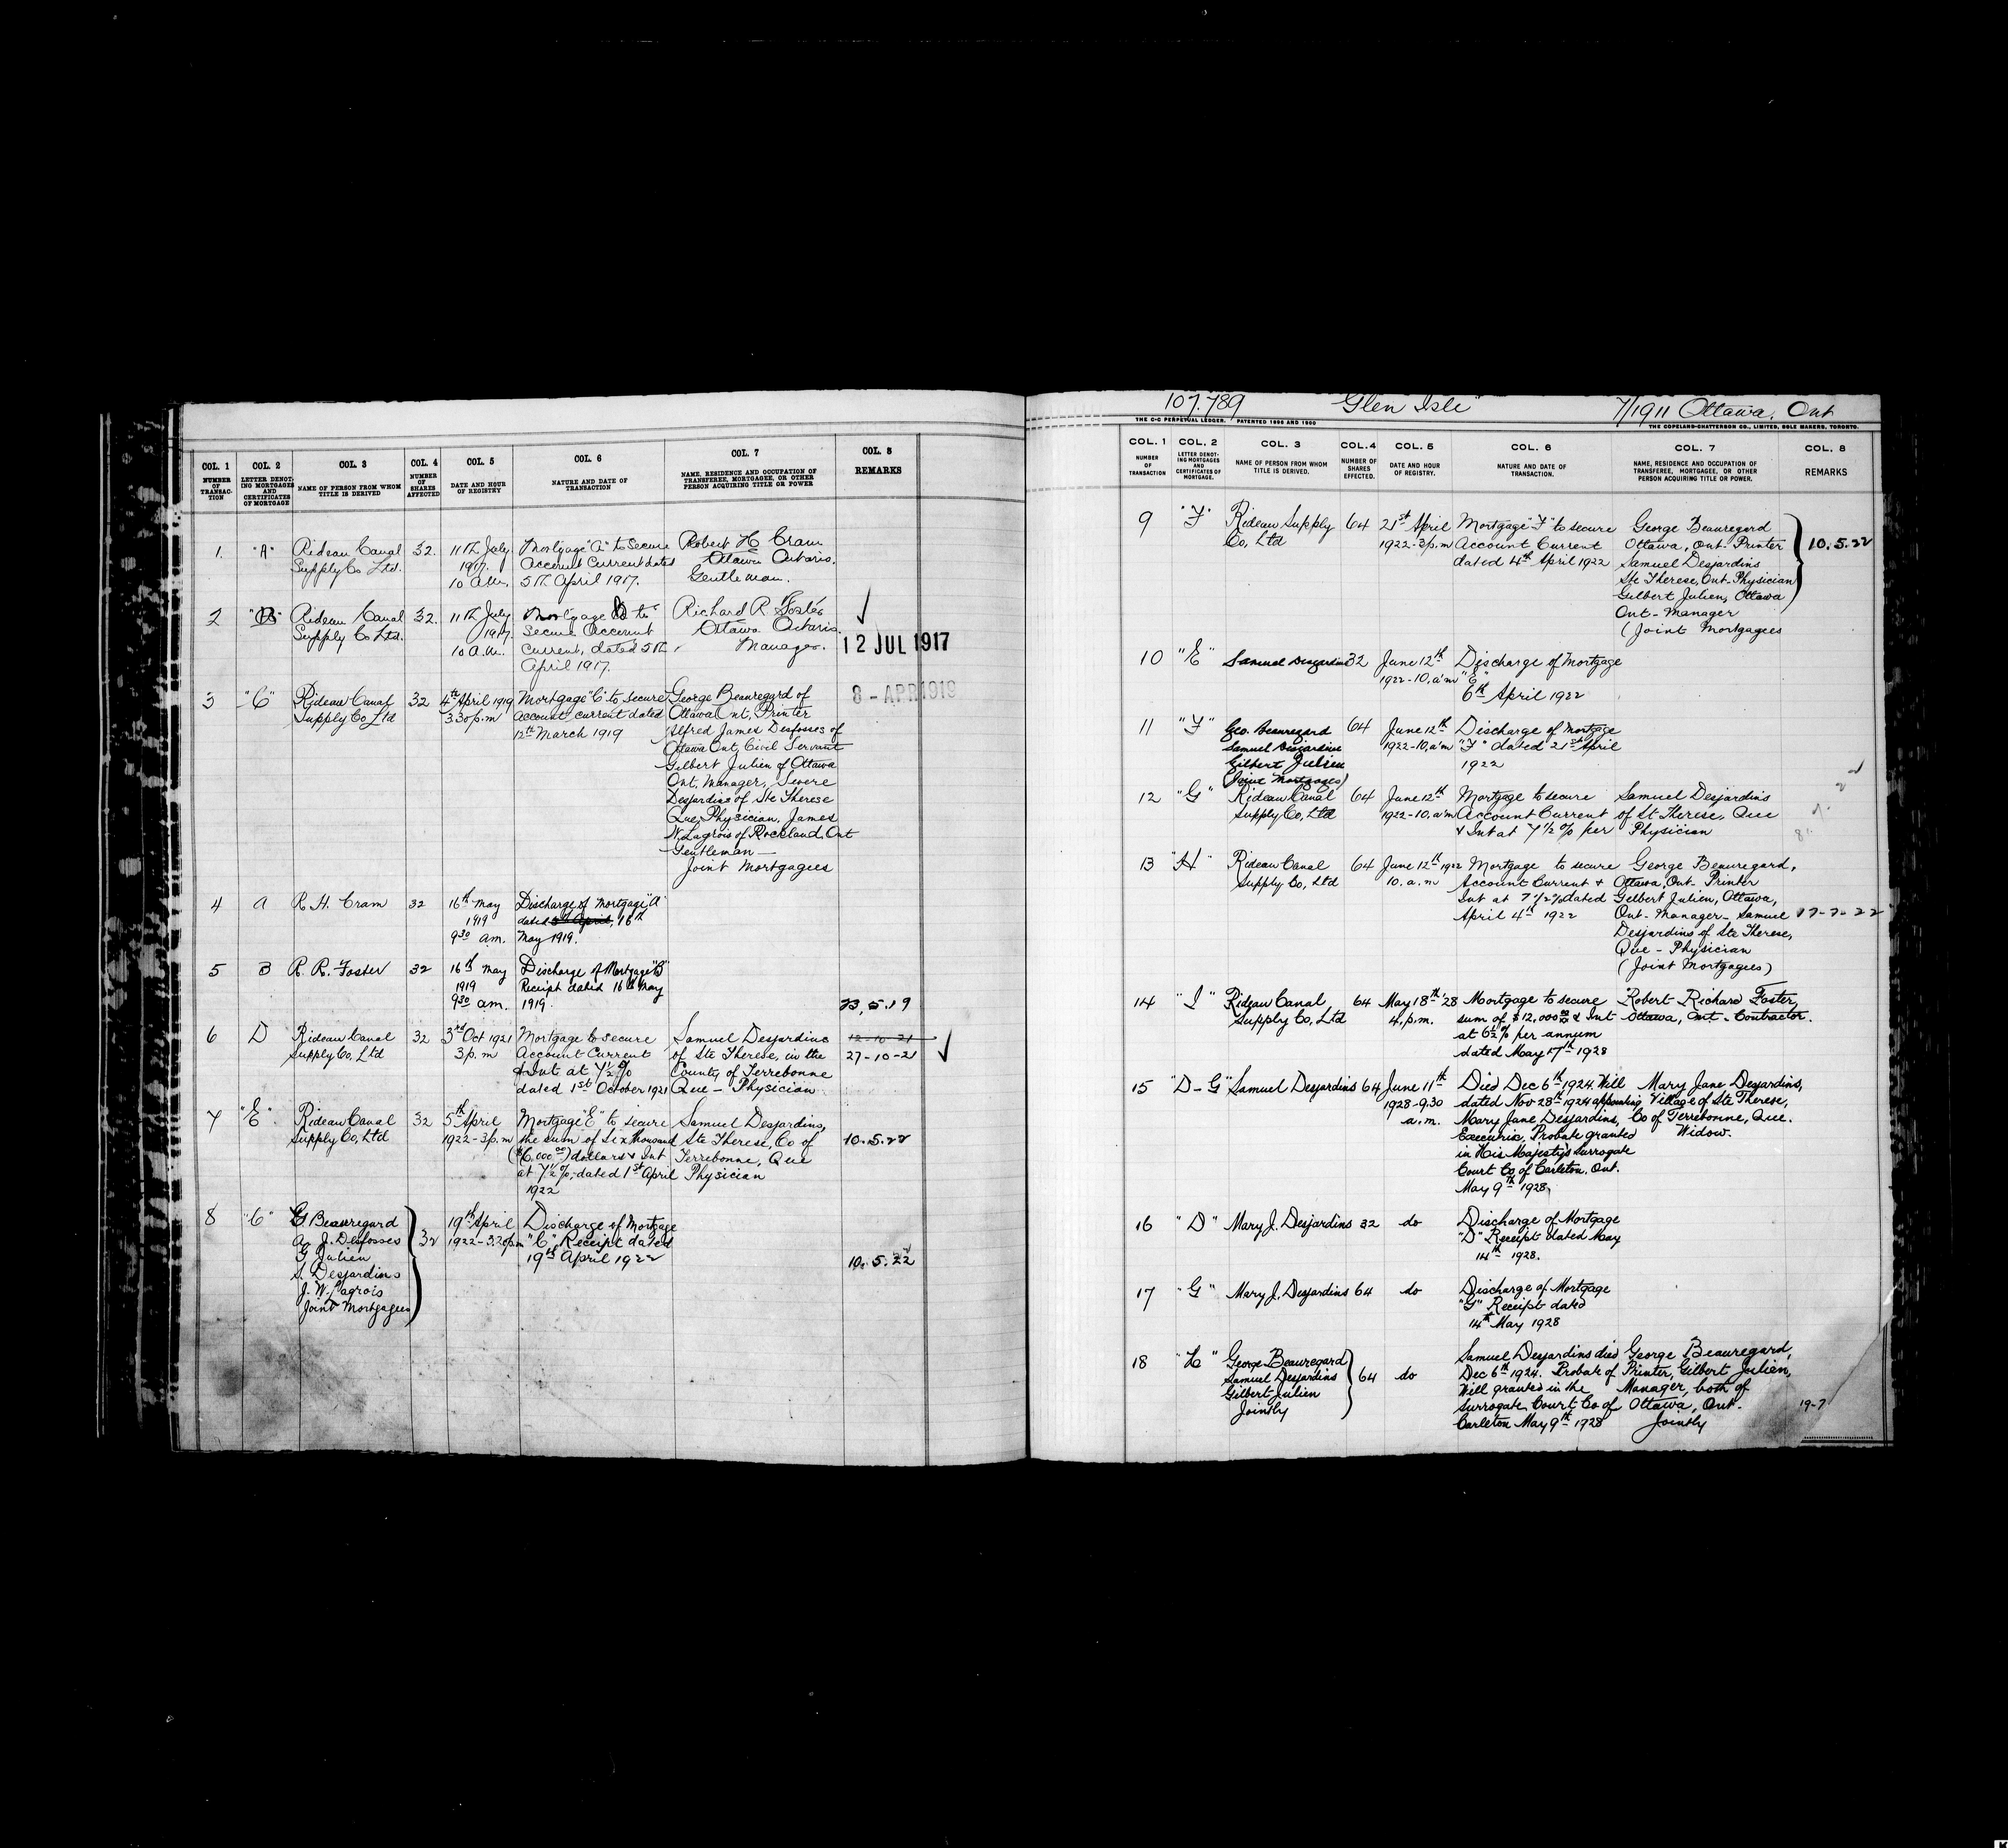 COL. 1
NUMBER
OF
TRANSAC-
TION
COL. 2
LETTER DENOT-
ING MORTGAGES
AND
CERTIFICATES
OF MORTGAGE
COL. 3
NAME OF PERSON FROM WHOM
TITLE IS DERIVED
COL. 4
NUMBER
OF
SHARES
AFFECTED
COL. 5
DATE AND HOUR
OF REGISTRY
COL. 6
NATURE AND DATE OF
TRANSACTION
COL. 7
NAME, RESIDENCE AND OCCUPATION OF
TRANSFEREE, MORTGAGEE, OR OTHER
PERSON ACQUIRING TITLE OR POWER
COL. 8
REMARKS
1. "A" Rideau Canal 32. 11th July Mortgage "A" to Secure Robert H Cram
Supply Co Ltd. 1917. Account Current dated Ottawa Ontario.
10 a.m. 5th April 1917. Gentleman.
2 "B" Rideau Canal 32. 11th July Mortgage B to Richard R Foster
Supply Co Ltd. 1917. Secure Account Ottawa Ontario.
10 a.m. Current, dated 5th Manager. 12 JUL 1917
April 1917.
3 "C" Rideau Canal 32 4th April 1919 Mortgage "C" to secure George Beauregard of 8 - APR 1919
Supply Co Ltd 3.30 p.m Account current dated Ottawa Ont, Printer
12th March 1919 Alfred James Desfosses of
Ottawa Ont, Civil Servant
Gilbert Julien of Ottawa
Ont, Manager, Severe
Desjardins of Ste Therese
Que, Physician, James
W. Lagrois of Rockland, Ont
Gentleman —
Joint Mortgagees
4 A R. H. Cram 32 16th May Discharge of Mortgage "A"
1919 dated 5th April, 16th
9 30 am. May 1919.
5 B R. R. Foster 32 16th May Discharge of Mortgage "B"
1919 Receipt dated 16th May
9 30 am. 1919. 23, 5. 19
6 D Rideau Canal 32 3rd Oct 1921 Mortgage to secure Samuel Desjardins 12-10-21
Supply Co, Ltd 3 p.m Account Current of Ste Therese, in the 27-10-21
& Int at 7½ % County of Terrebonne
dated 1st October 1921 Que — Physician
7 "E" Rideau Canal 32 5th April Mortgage "E" to secure Samuel Desjardins,
Supply Co, Ltd 1922-3 p.m the sum of Six thousand Ste Therese, Co of 10.5.22
($6,000 00) dollars & Int Terrebonne, Que
at 7½ %, dated 1st April Physician
1922
8 "C" G Beauregard 32 19th April Discharge of Mortgage
A. J. Desfosses 1922-3.20pm "C", Receipt dated
G Julien 19th April 1922 10. 5. 22
S. Desjardins
J. W. Lagrois
Joint Mortgagees
107.789 "Glen Isle" 7/1911 Ottawa, Ont
THE C-C PERPETUAL LEDGER. PATENTED 1896 AND 1900
THE COPELAND-CHATTERSON CO., LIMITED, SOLE MAKERS, TORONTO.
COL. 1
NUMBER
OF
TRANSACTION
COL. 2
LETTER DENOT-
ING MORTGAGES
AND
CERTIFICATES OF
MORTGAGE.
COL. 3
NAME OF PERSON FROM WHOM
TITLE IS DERIVED.
COL. 4
NUMBER OF
SHARES
EFFECTED.
COL. 5
DATE AND HOUR
OF REGISTRY.
COL. 6
NATURE AND DATE OF
TRANSACTION.
COL. 7
NAME, RESIDENCE AND OCCUPATION OF
TRANSFEREE, MORTGAGEE, OR OTHER
PERSON ACQUIRING TITLE OR POWER.
COL. 8
REMARKS
9 "F" Rideau Supply 64 21st April Mortgage "F" to secure George Beauregard
Co, Ltd 1922-3p.m Account Current Ottawa, Ont. Printer 10.5.22
dated 4th April 1922 Samuel Desjardins
Ste Therese, Ont. Physician
Gilbert Julien, Ottawa
Ont — Manager
(Joint Mortgagees
10 "E" Samuel Desjardins 32 June 12th Discharge of Mortgage
1922-10, a'm "E"
6th April 1922
11 "F" Geo. Beauregard 64 June 12th Discharge of Mortgage
Samuel Desjardins 1922-10, a'm "F" dated 21st April
Gilbert Julien 1922
(Joint Mortgages)
12 "G" Rideau Canal 64 June 12th Mortgage to secure Samuel Desjardins
Supply Co, Ltd 1922-10, a'm Account Current of St Therese, Que
& Int at 7½ % per Physician
13 "H" Rideau Canal 64 June 12th 1922 Mortgage to secure George Beauregard,
Supply Co, Ltd 10. a. m Account Current & Ottawa, Ont. Printer
Int at 7½% dated Gilbert Julien, Ottawa,
April 4th 1922 Ont — Manager — Samuel 17-7-22
Desjardins of Ste Therese,
Que — Physician
(Joint Mortgagees)
14 "I" Rideau Canal 64 May 18th '28 Mortgage to secure Robert Richard Foster,
Supply Co, Ltd 4, p.m. sum of $12,000 00 & Int Ottawa, Ont — Contractor.
at 6½% per annum
dated May 17th 1928
15 "D-G" Samuel Desjardins 64 June 11th Died Dec 6th 1924. Will Mary Jane Desjardins,
1928-9.30 dated Nov 28th 1924 appointing Village of Ste Therese,
a.m. Mary Jane Desjardins, Co of Terrebonne, Que.
Executrix, Probate granted Widow.
in His Majesty's Surrogate
Court Co of Carleton, Ont.
May 9th 1928.
16 "D" Mary J. Desjardins 32 do Discharge of Mortgage
"D" Receipt dated May
14th 1928.
17 "G" Mary J. Desjardins 64 do Discharge of Mortgage
"G" Receipt dated
14th May 1928
18 "H" George Beauregard 64 do Samuel Desjardins died George Beauregard,
Samuel Desjardins Dec 6th 1924. Probate of Printer, Gilbert Julien,
Gilbert Julien Will granted in the Manager, both of
Jointly Surrogate Court Co of Ottawa, Ont. 19-7
Carleton May 9th 1928 Jointly